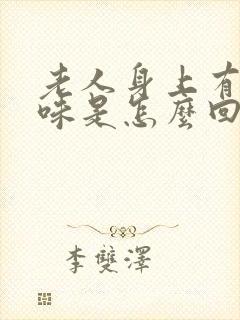 老人身上有
味是怎麼回
李雙澤